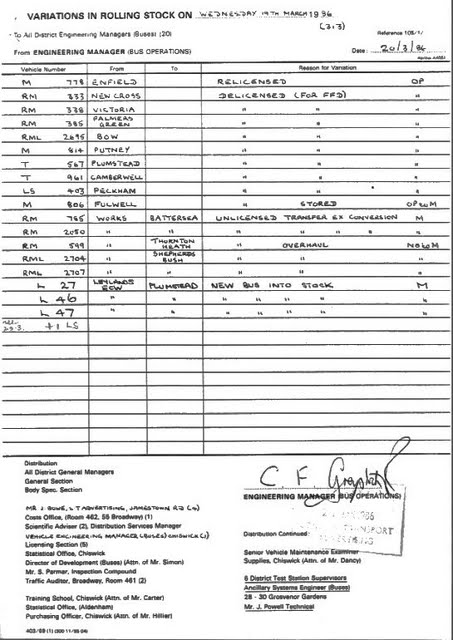 VARIATIONS IN ROLLING STOCK ON WEDNESDAY 19TH MARCH 1986
(3.3)
To All District Engineering Managers (Buses) (20)
Reference 108/1/
From ENGINEERING MANAGER (BUS OPERATIONS)
Date: 20/3/86
Vehicle Number From To Reason for Variation
M 778 ENFIELD RELICENSED OP
RM 333 NEW CROSS DELICENSED (FOR FFD) M
RM 338 VICTORIA " " "
RM 385 PALMERS GREEN " " "
RML 2695 BOW " " "
M 814 PUTNEY " " "
T 567 PLUMSTEAD " " "
T 961 CAMBERWELL " " "
LS 403 PECKHAM " " "
M 806 FULWELL " STORED OP to M
RM 785 WORKS BATTERSEA UNLICENSED TRANSFER EX CONVERSION M
RM 2050 " " " " " " "
RM 599 " THORNTON HEATH " OVERHAUL
RML 2704 " SHEPHERDS BUSH " " "
RML 2707 " " " " "
L 27 LEYLANDS ECW PLUMSTEAD NEW BUS INTO STOCK M
L 46 " " " " " " "
L 47 " " " " " " "
+1 LS
Distribution
All District General Managers
General Section
Body Spec. Section
MR J. BOWE, LT ADVERTISING, JAMESTOWN RD
Costs Office, (Room 462, 56 Broadway) (1)
Scientific Adviser (2), Distribution Services Manager
VEHICLE ENGINEERING MANAGER (BUSES) CHISWICK (1)
Licensing Section (5)
Statistical Office, Chiswick
Director of Development (Buses) (Attn of Mr. Simon)
Mr. S. Parmar, Inspection Compound
Traffic Auditor, Broadway, Room 461 (2)
Training School, Chiswick (Attn of Mr. Carter)
Statistical Office, (Aldenham)
Purchasing Officer, Chiswick (Attn of Mr. Hillier)
C F
ENGINEERING MANAGER (BUS OPERATIONS)
1986
TRANSPORT
Distribution Continued:
Senior Vehicle Maintenance Examiner
Supplies, Chiswick (Attn of Mr. Dancy)
6 District Test Station Supervisors
Ancillary Systems Engineer (Buses)
28 - 30 Grosvenor Gardens
Mr. J. Powell Technical